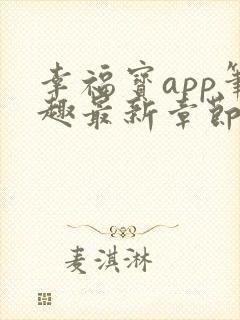 幸福寳app筆
趣最新章節
麦淇淋